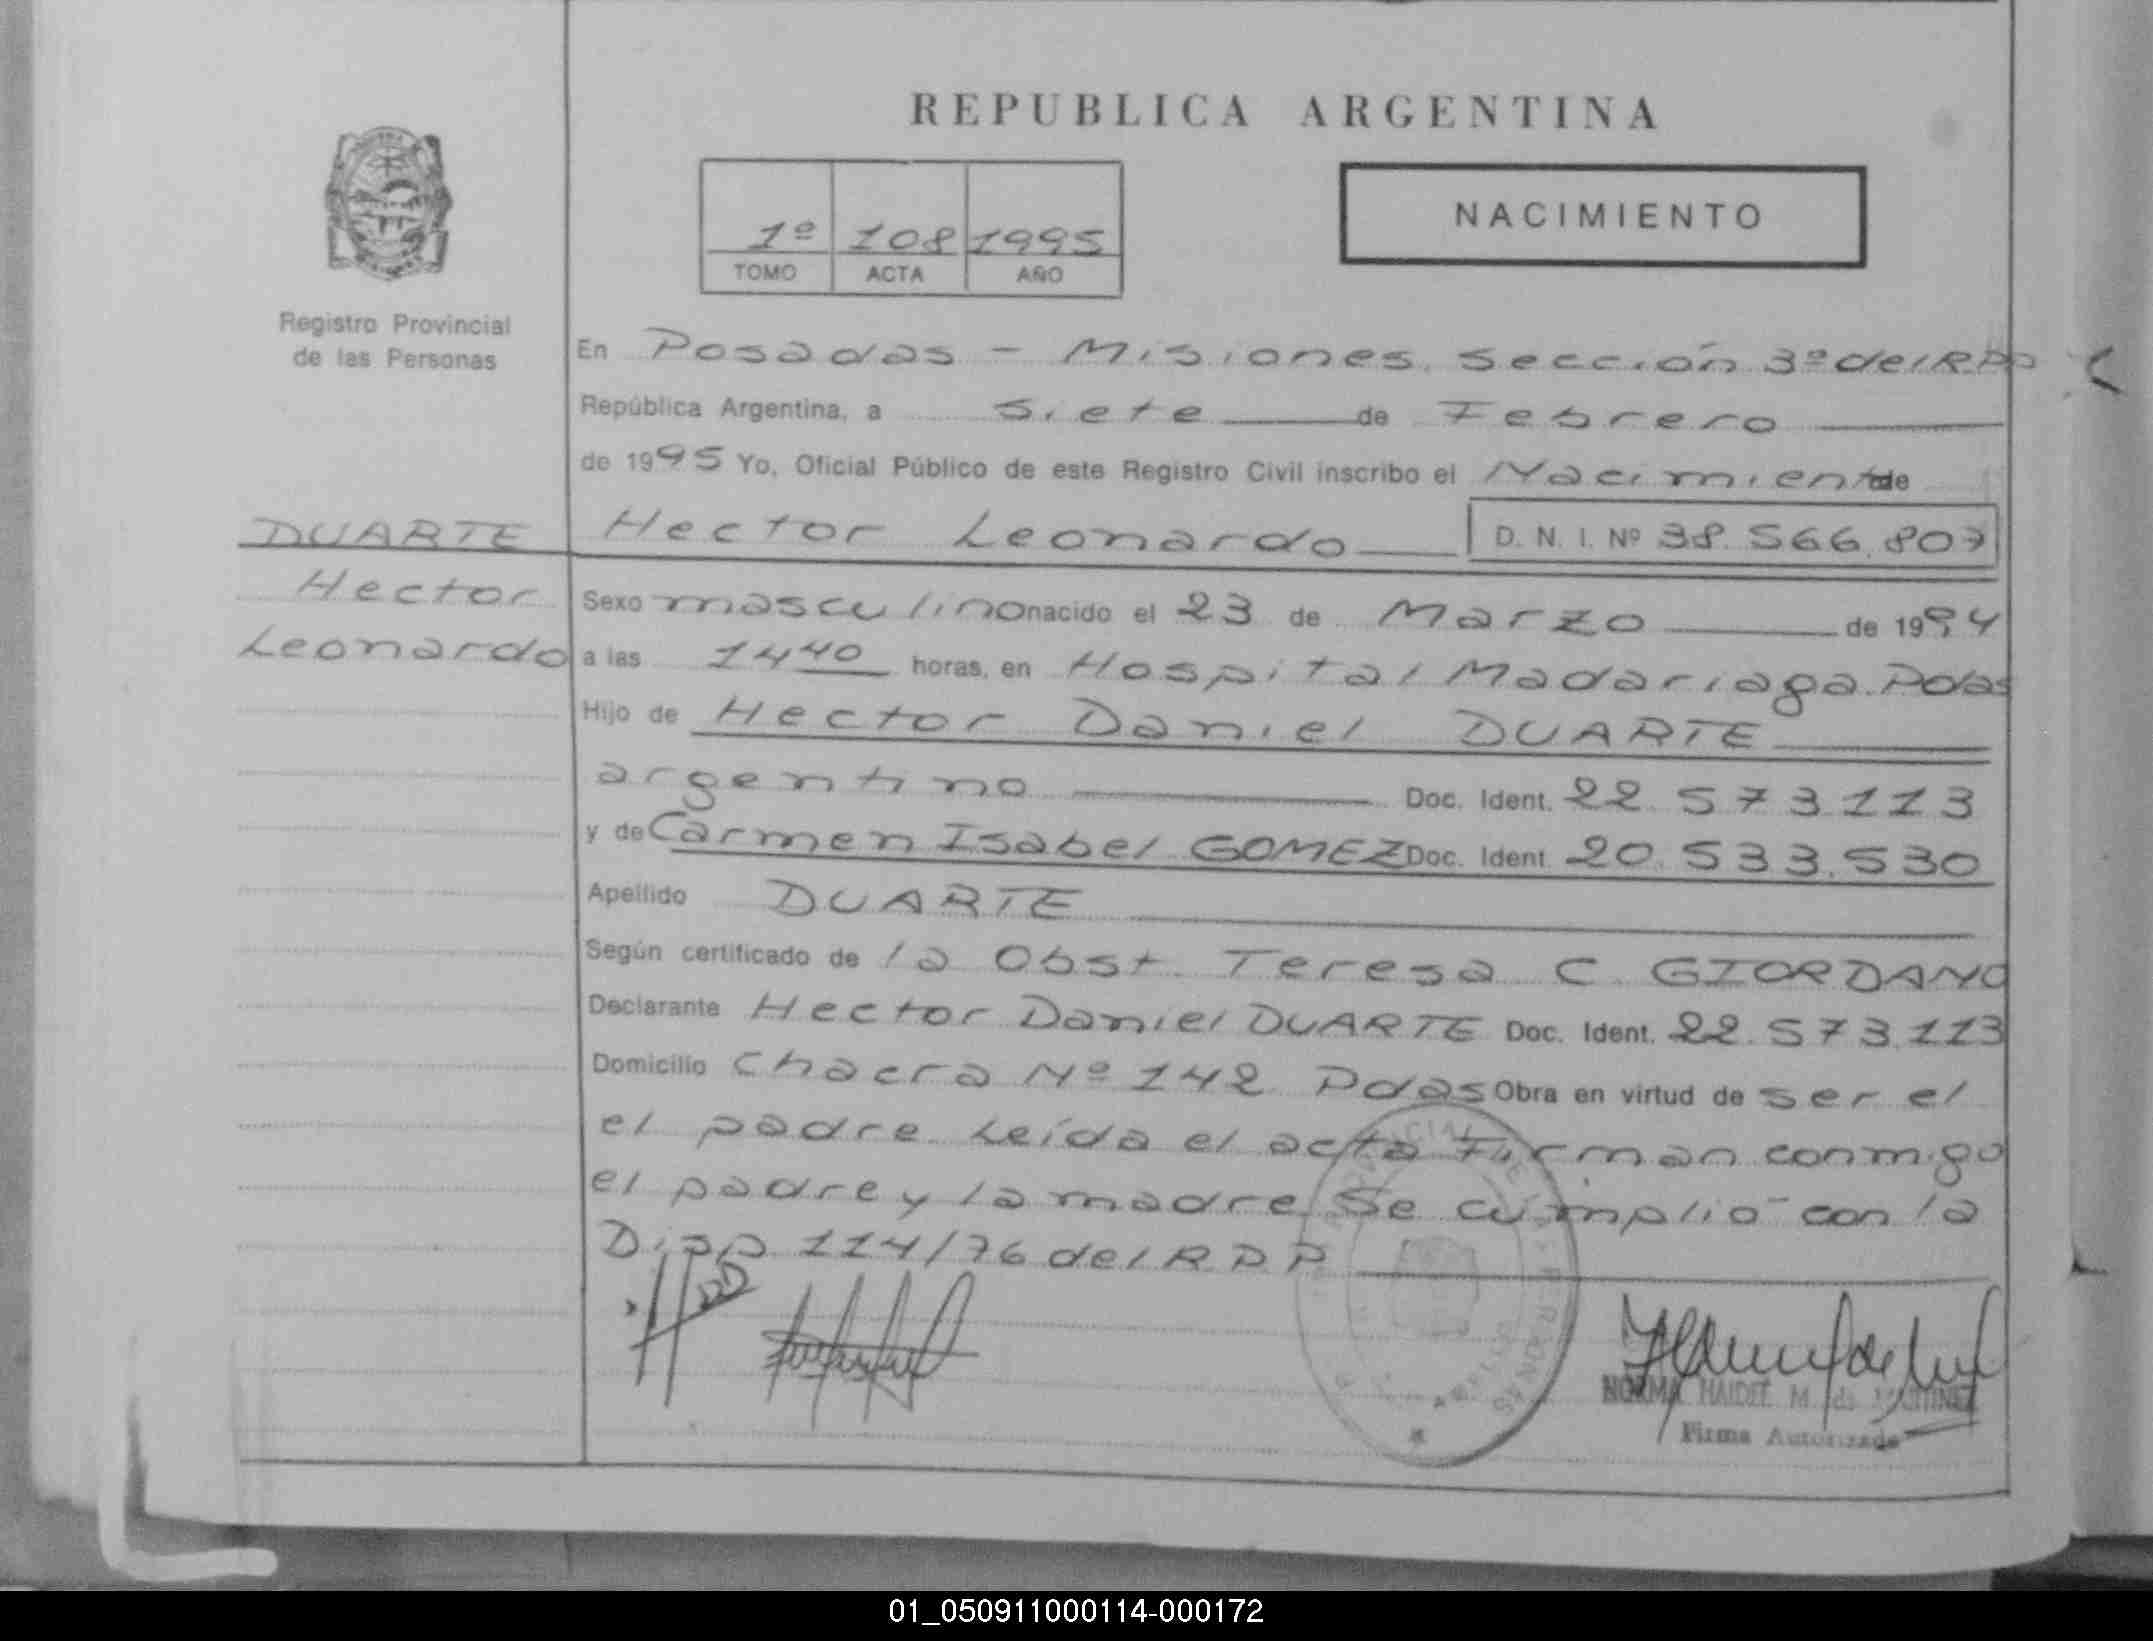 REPUBLICA ARGENTINA
NACIMIENTO
1º 108 1995
TOMO ACTA AÑO
Registro Provincial
de las Personas
En Posadas - Misiones. Sección 3º del RPP
República Argentina, a Siete de Febrero
de 1995 Yo, Oficial Público de este Registro Civil inscribo el Nacimiento de
DUARTE
Hector
Leonardo
Hector Leonardo D. N. I. Nº 38.566.807
Sexo masculino nacido el 23 de Marzo de 1994
a las 14 40 horas, en Hospital Madariaga. Pdas
Hijo de Hector Daniel DUARTE
argentino Doc. Ident. 22.573.113
y de Carmen Isabel GOMEZ Doc. Ident. 20.533.530
Apellido DUARTE
Según certificado de la Obst. Teresa C. GIORDANO
Declarante Hector Daniel DUARTE Doc. Ident. 22.573.113
Domicilio Chacra Nº 142 Pdas Obra en virtud de ser el
el padre. Leída el acta Firman conmigo
el padre y la madre. Se cumplió con la
Disp. 114/76 del RPP
NORMA HAIDEE M. de
Firma Autorizada
01_050911000114-000172